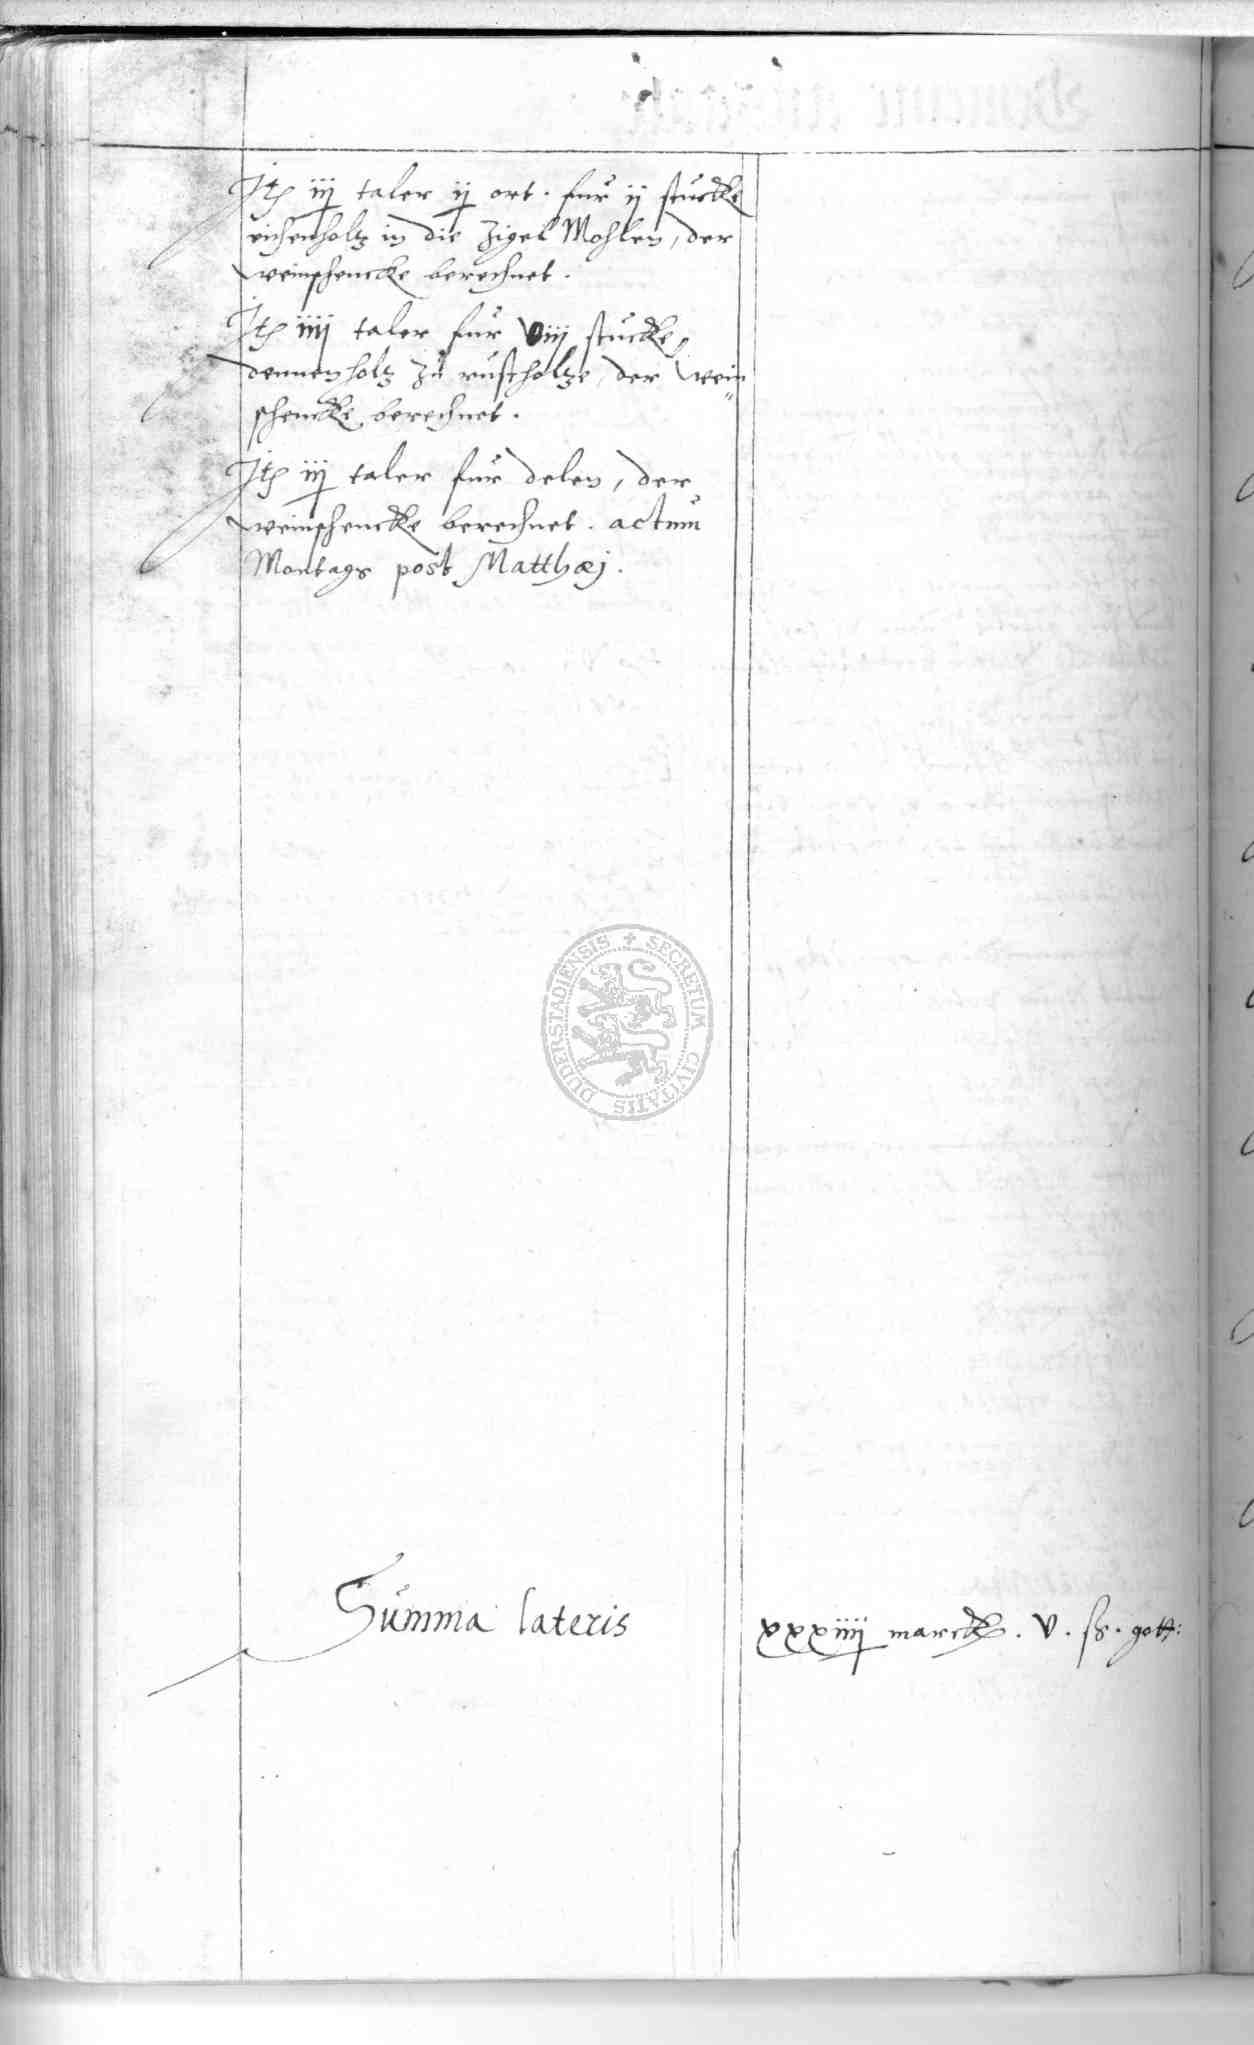 Jtem iij taler ij ort. fur ij stucke
eichenholtz in die Zigel Mohlen, der
weinschencke berechnet.
Jtem iiij taler fur viij stucke
dennenholtz zu rustholtze, der wein
schencke berechnet.
Jtem iij taler fur delen, der
weinschencke berechnet. actum
Montags post Matthæj.
SECRETUM CIVITATIS DUDERSTADIENSIS
Summa lateris xxxiiij marck. v. ß. gott: